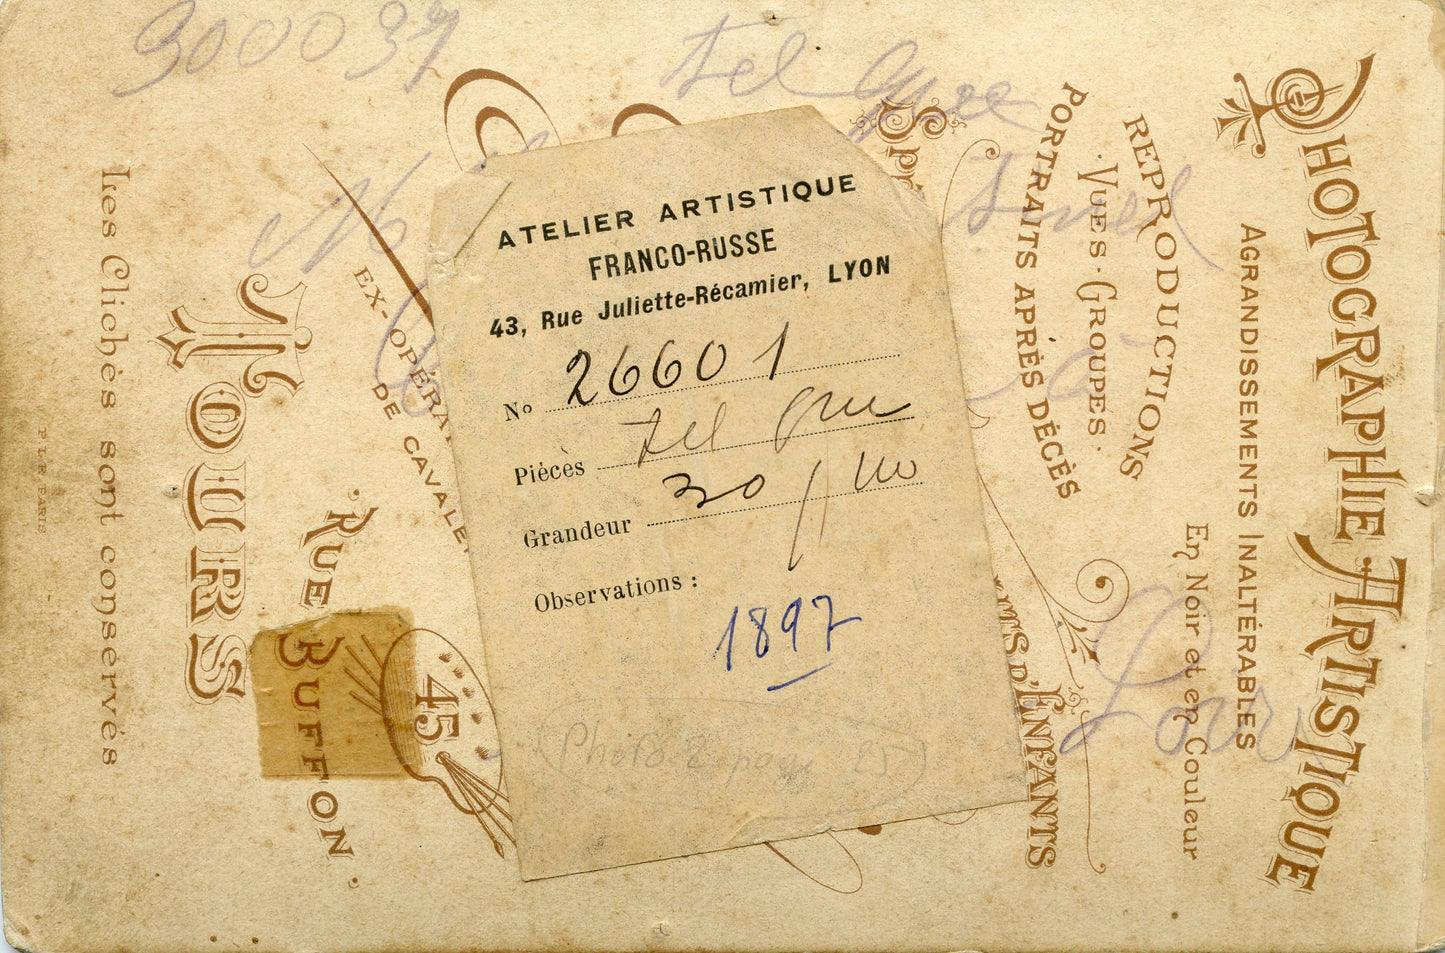 ATELIER ARTISTIQUE
FRANCO-RUSSE
43, Rue Juliette-Récamier, LYON
No 26601
Pièces tel
Grandeur 30
Observations :
1897
Photo 2 page 25
PHOTOGRAPHIE ARTISTIQUE
AGRANDISSEMENTS INALTÉRABLES
En Noir et en Couleur
REPRODUCTIONS
·VUES·GROUPES·
PORTRAITS APRÈS DÉCÈS
D'ENFANTS
EX-OPÉRA
DE CAVALE
45
·RUE BUFFON·
TOURS
Les Clichés sont conservés
PARIS
300037
tel